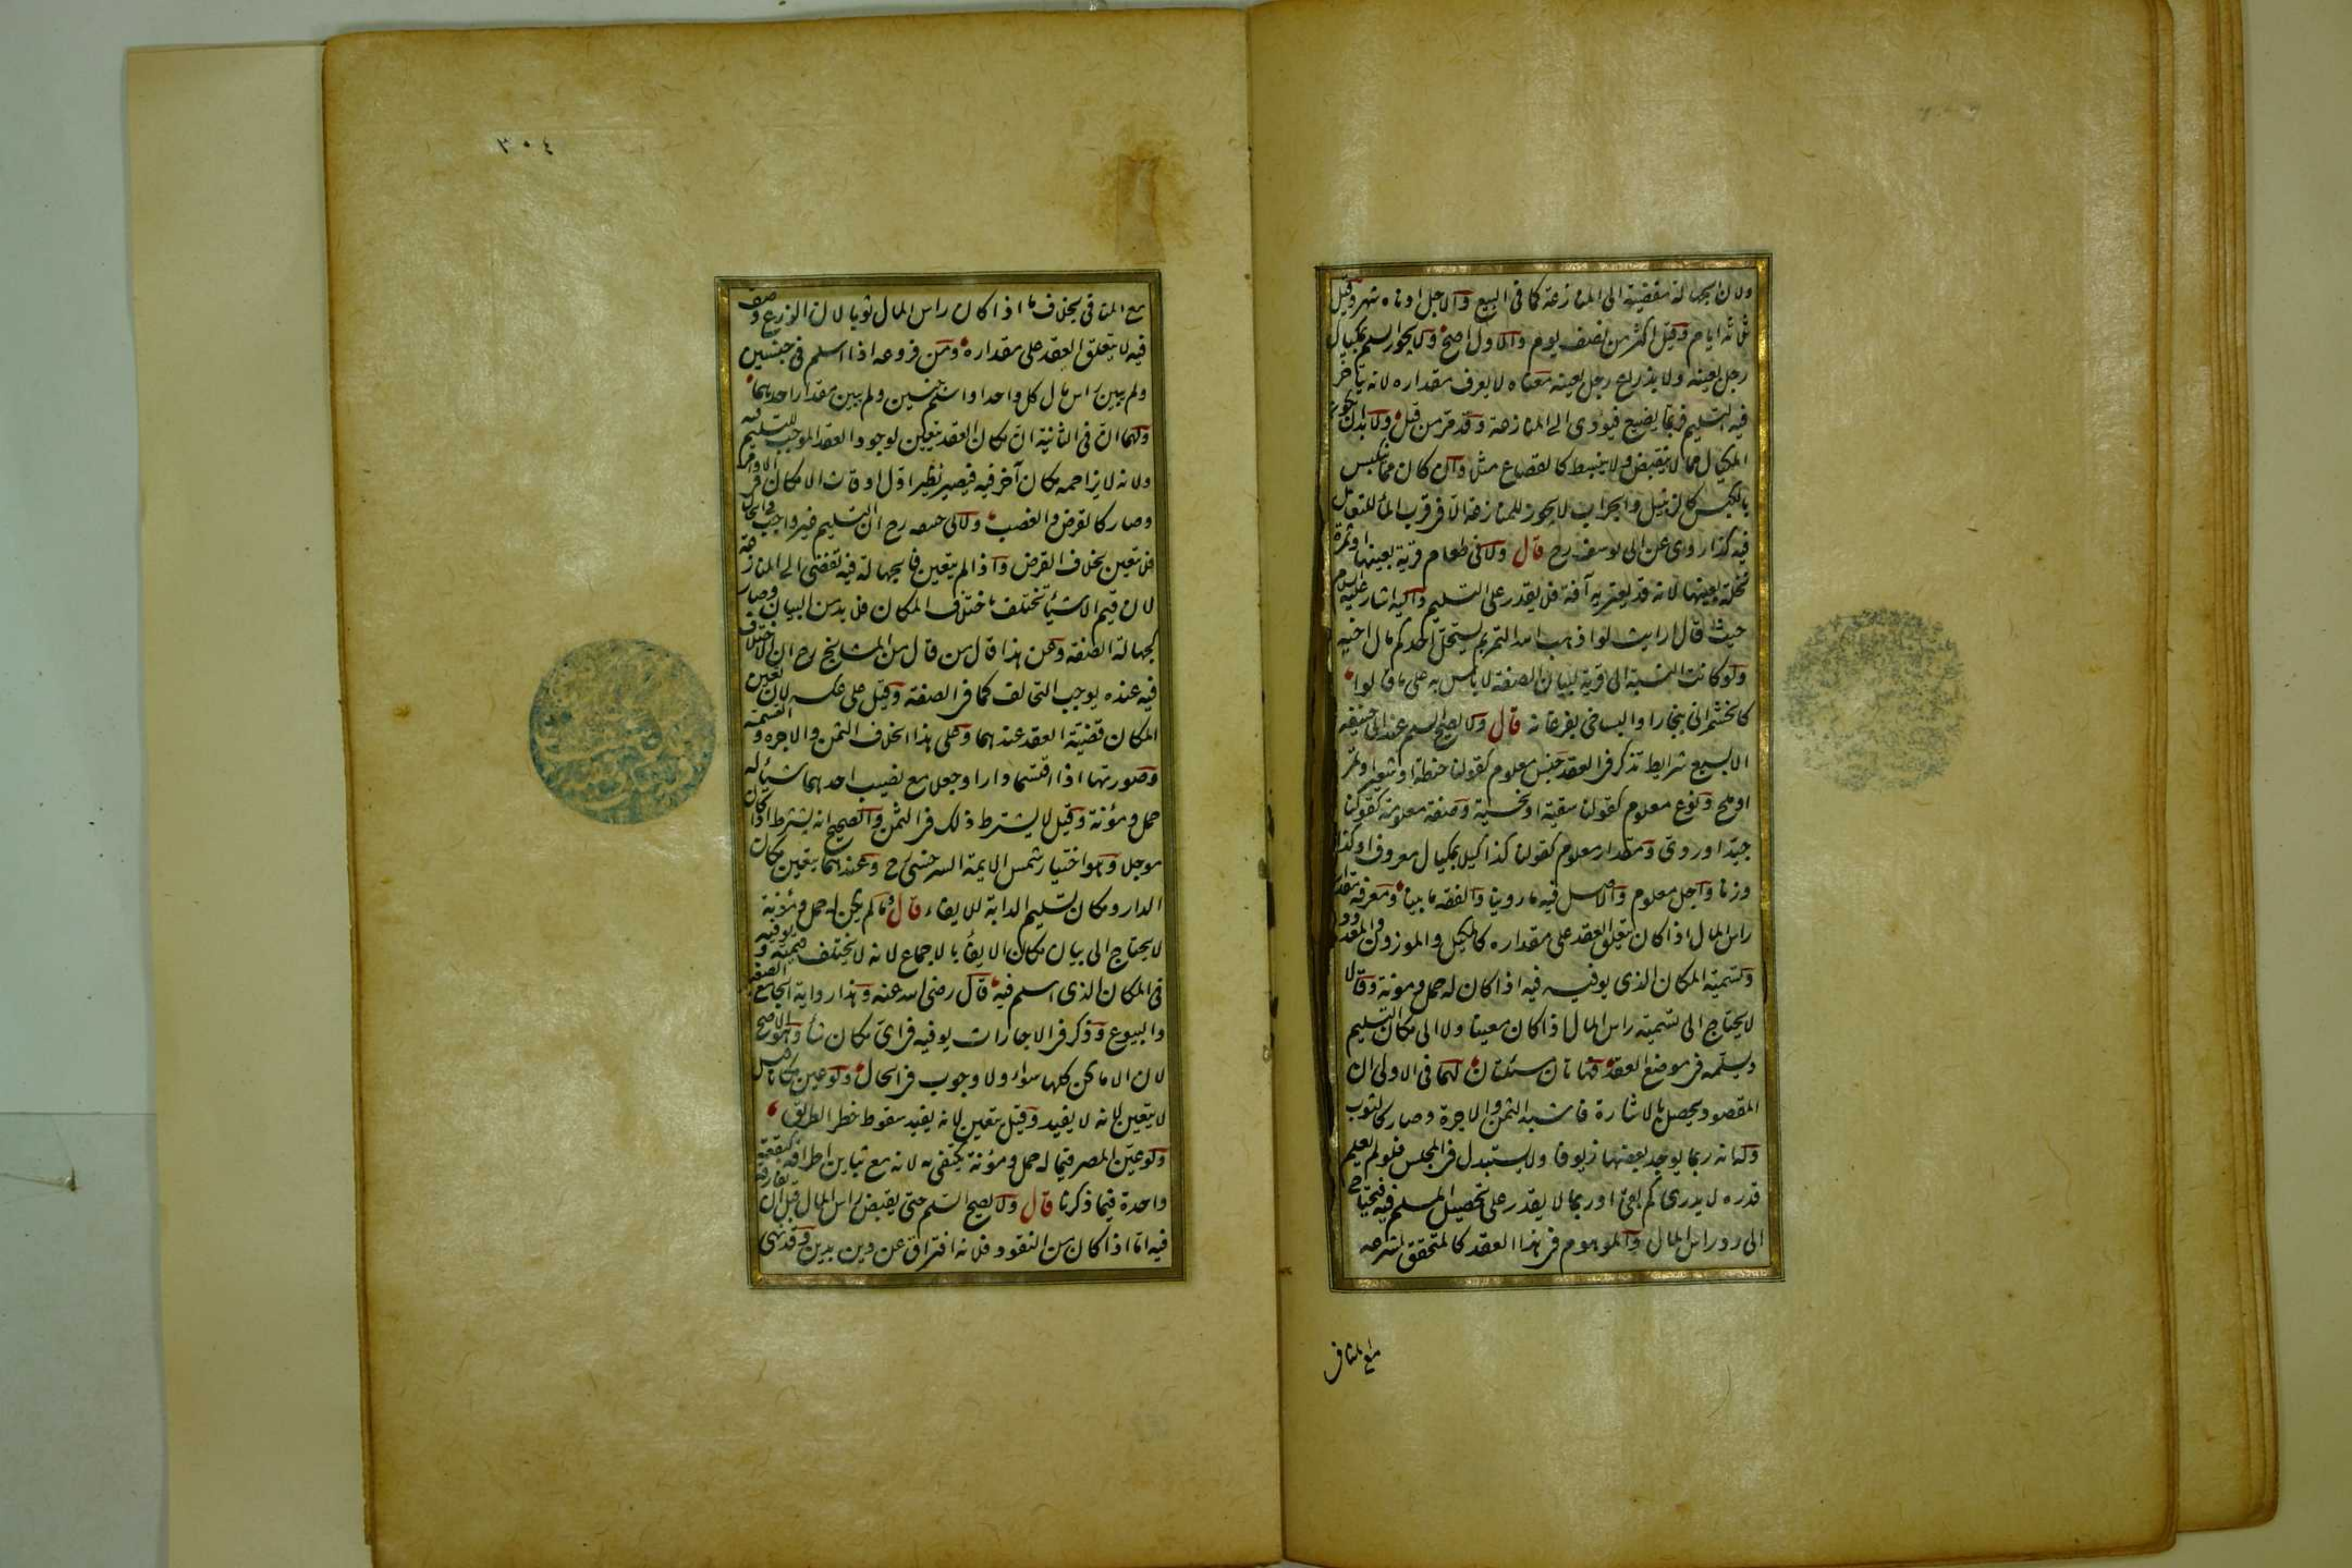 ولان الجهالة مفضية الى المنازعة كما فى البيع والاجل ادناه شهر وقيل
ثلثة ايام وقيل اكثر من نصف يوم والاول اصح ولا يجوز السلم بمكيال
رجل بعينه ولا بذراع رجل بعينه معناه لا يعرف مقداره لانه يتأخر
فيه التسليم فربما يضيع فيؤدى الى المنازعة وقد مر من قبل ولا بد ان يكون
المكيال مما لا ينقبض ولا ينبسط كالقصاع مثلا وان كان مما ينكبس
بالكبس كالزنبيل والجراب لا يجوز للمنازعة الا فى قرب الماء للتعامل
فيه كذا روى عن ابى يوسف رح قال ولا فى طعام قرية بعينها او ثمرة
نخلة بعينها لانه قد يعتريه آفة فلا يقدر على التسليم واليه اشار عليه السلام
حيث قال ارايت لو اذهب الله الثمر بم يستحل احدكم مال اخيه
ولو كانت النسبة الى قرية لبيان الصفة لا بأس به على ما قالوا
كالخشمرانى ببخارا والبساخى بفرغانه قال ولا يصح السلم عند ابى حنيفه
الا بسبع شرايط تذكر فى العقد جنس معلوم كقولنا حنطة او شعير او تمر
او ملح ونوع معلوم كقولنا سقية او بخسية وصفة معلومة كقولنا
جيد او ردى ومقدار معلوم كقولنا كذا كيلا بمكيال معروف او كذا
وزنا واجل معلوم والاصل فيه ما روينا والفقه ما بينا ومعرفة مقدار
راس المال اذا كان يتعلق العقد على مقداره كالمكيل والموزون والمعدود
وتسمية المكان الذى يوفيه فيه اذا كان له حمل ومونة وقالا
لا يحتاج الى تسمية راس المال اذا كان معينا ولا الى مكان التسليم
ويسلمه فى موضع العقد فهاتان مسئلتان لهما فى الاولى ان
المقصود يحصل بالاشارة فاشبه الثمن والاجرة وصار كالثوب
وله انه ربما يوجد بعضها زيوفا ولا يستبدل فى المجلس فلو لم يعلم
قدره لا يدرى كم بقى او ربما لا يقدر على تحصيل المسلم فيه فيحتاج
الى رد راس المال والموهوم فى هذا العقد كالمتحقق لشرعه
مع المنافى
٣٠٤
مع المنافى بخلاف ما اذا كان راس المال ثوبا لان الذرع وصف
فيه لا يتعلق العقد على مقداره ومن فروعه اذا اسلم فى جنسين
ولم يبين راس مال كل واحد او اسلم جنسين ولم يبين مقدار احدهما
ولهما ان فى الثانية ان مكان العقد يتعين لوجود العقد الموجب للتسليم فيه
ولانه لا يزاحمه مكان آخر فيه فيصير نظير اول اوقات الامكان فى الاوامر
وصار كالقرض والغصب ولابى حنيفه رح ان التسليم غير واجب فى الحال
فلا يتعين بخلاف القرض واذا لم يتعين فالجهالة فيه تفضى الى المنازعة
لان قيم الاشيأ تختلف باختلاف المكان فلا بد من البيان وصار
كجهالة الصفة وعن هذا قال من قال من المشايخ رح ان الاختلاف
فيه عنده يوجب التخالف كما فى الصفة وقيل على عكسه لان تعين
المكان قضية العقد عندهما وعلى هذا الخلاف الثمن والاجره والقسمة
وصورتها اذا اقتسما دارا وجعلا مع نصيب احدهما شيأ له
حمل ومؤنة وقيل لا يشترط ذلك فى الثمن والصحيح انه يشترط اذا كان
موجلا وهو اختيار شمس الايمة السرخسى رح وعندهما يتعين مكان
الدار ومكان تسليم الدابة للايفاء قال وما لم يكن له حمل ومؤنة
لا يحتاج الى بيان مكان الايفأ بالاجماع لانه لا يختلف قيمته ويوفيه
فى المكان الذى اسلم فيه قال رضى الله عنه وهذا رواية الجامع الصغير
والبيوع وذكر فى الاجارات يوفيه فى اى مكان شأ وهو الاصح
لان الاماكن كلها سواء ولا وجوب فى الحال ولو عين مكانا قيل
لا يتعين لانه لا يفيد وقيل يتعين لانه يفيد سقوط خطر الطريق
ولو عين المصر فيما له حمل ومؤنة يكتفى به لانه مع تباين اطرافه كبقعة
واحدة فيما ذكرنا قال ولا يصح السلم حتى يقبض راس المال قبل ان يفارقه
فيه اما اذا كان من النقود فلانه افتراق عن دين بدين وقد نهى